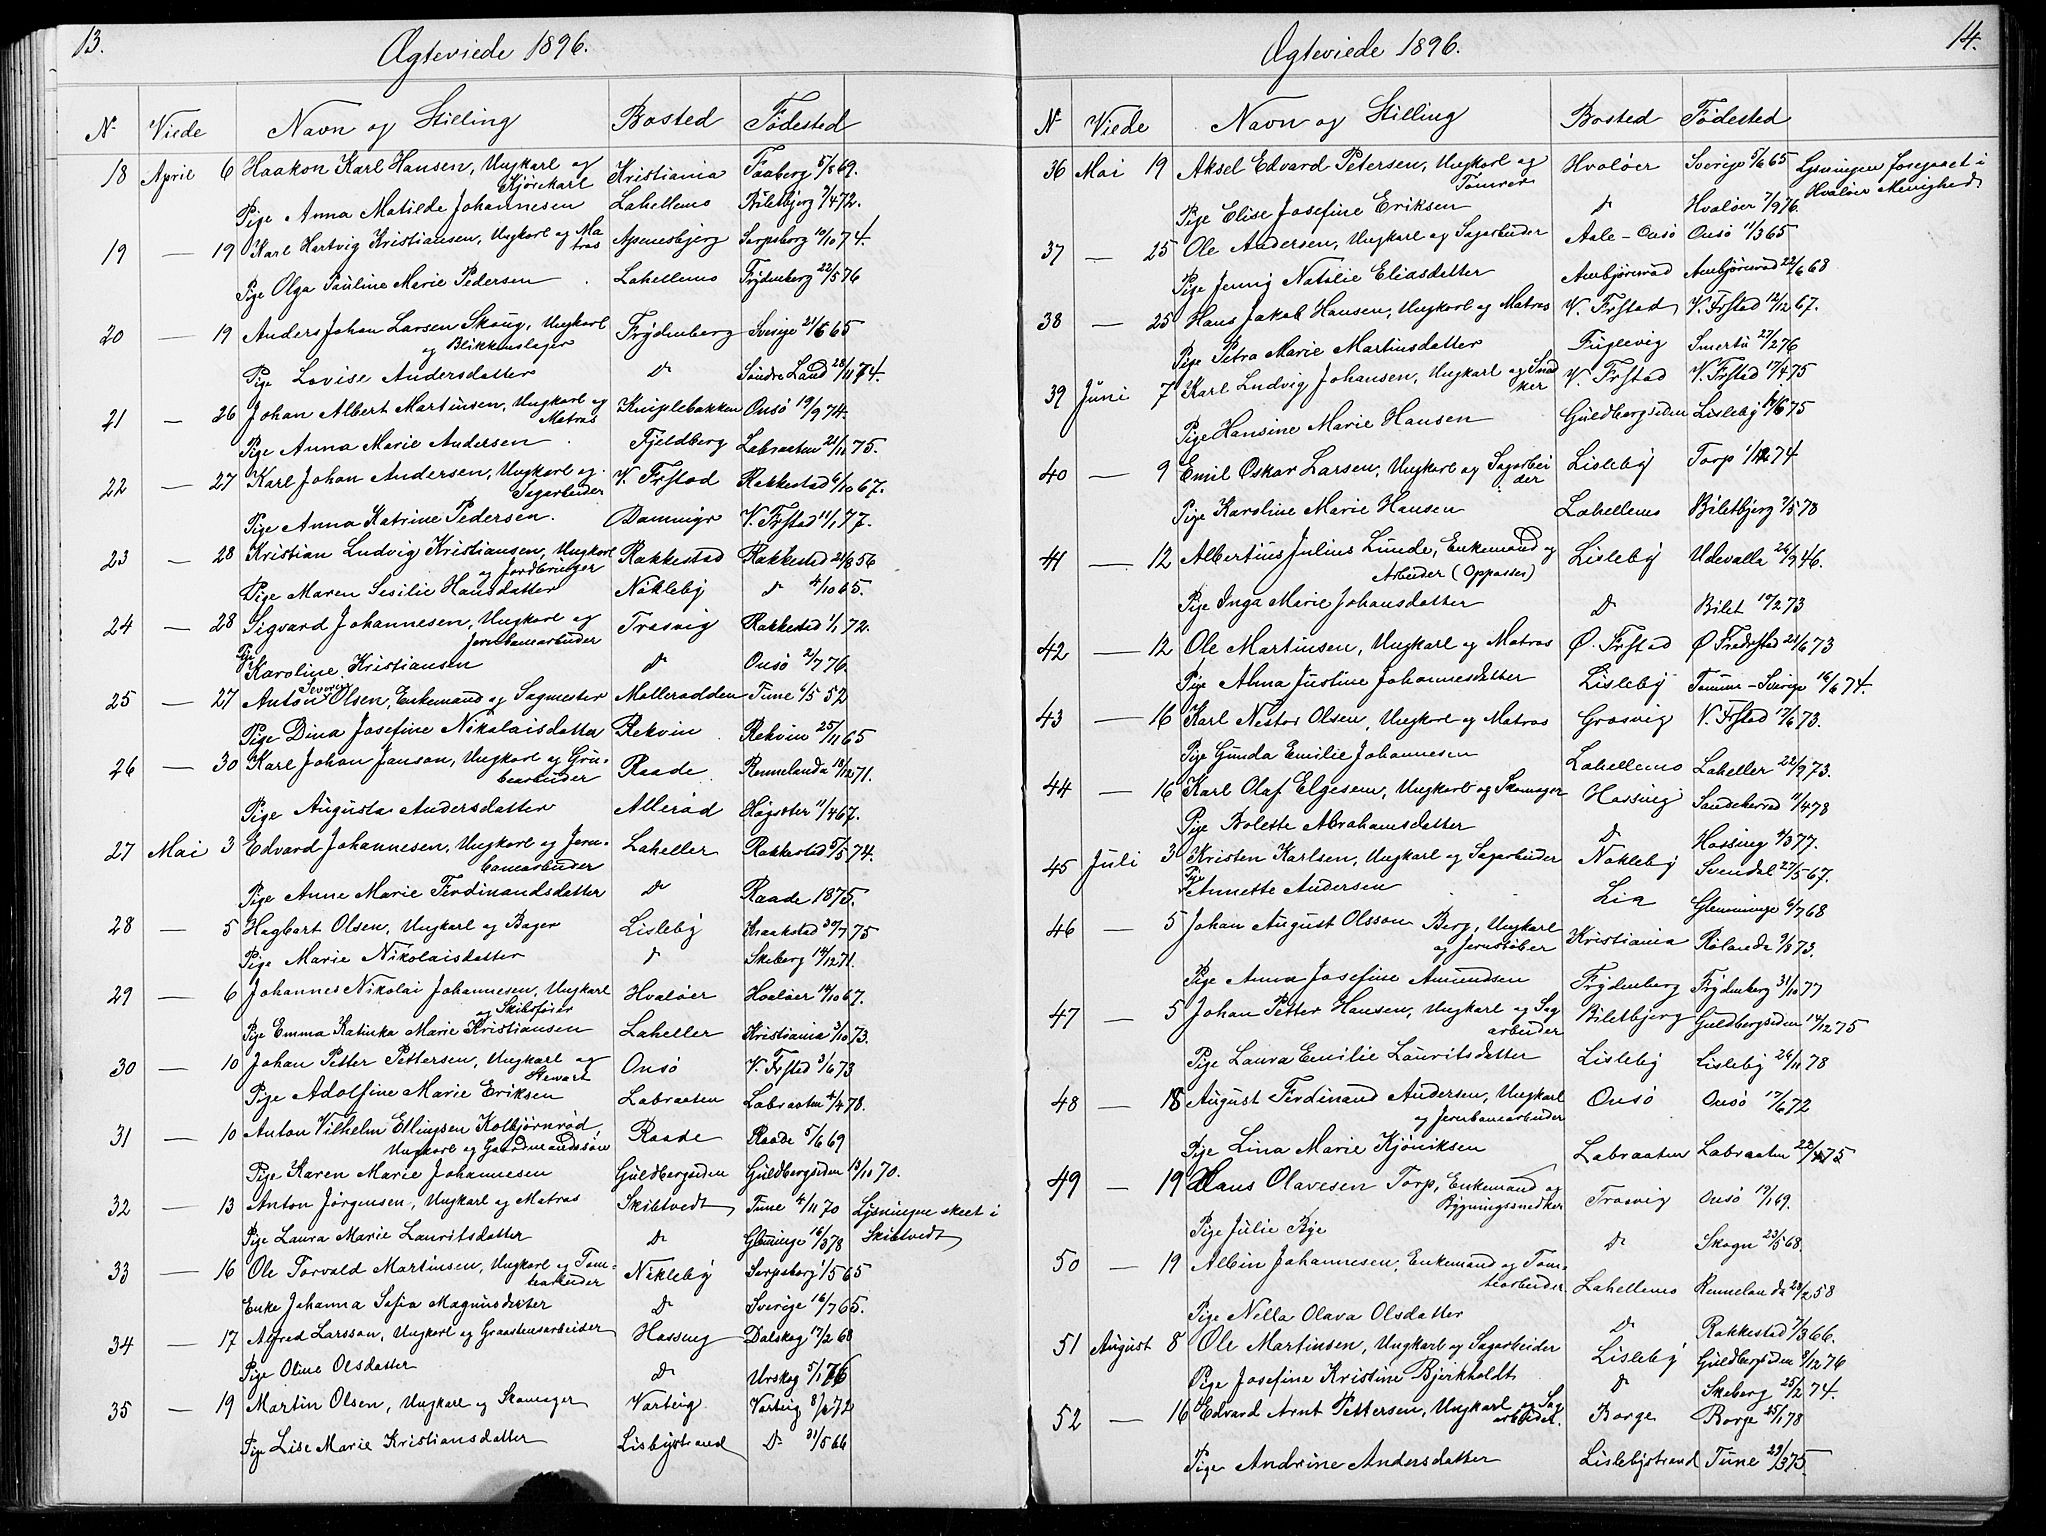 13.
Ægteviede 1896.
N. Viede Navn og Stilling Bosted Fødested
18 April 6 Haakon Karl Hansen, Ungkarl og Kristiania Faaberg 5/8 69.
Kjørekarl
Pige Anna Matilde Johannesen Lahellemo Biletbjerg 7/4 72.
19 — 19 Karl Hartvig Kristiansen, Ungkarl og Ma Apenesbjerg Sarpsborg 10/10 74.
tros
Pige Olga Pauline Marie Pedersen Lahellemo Frydenberg 22/5 76
20 — 19 Anders Johan Larsen Skaug, Ungkarl Frydenberg Sverige 21/6 65
og Blikkenslager
Pige Lovise Andersdatter Do Søndre Land 28/11 74.
21 — 26 Johan Albert Martinsen, Ungkarl og Kniplebakken Onsø 19/9 74.
Matros
Pige Anna Marie Andersen Fjeldberg Labraaten 21/11 75.
22 — 27 Karl Johan Andersen, Ungkarl og V. Frstad Rakkestad 6/10 67.
Sagarbeider
Pige Anna Katrine Pedersen. Damnigr V. Frstad 11/1 77.
23 — 28 Kristian Ludvig Kristiansen, Ungkarl Rakkestad Rakkestad 21/8 56
og Jordbruger
Pige Maren Sesilie Hansdatter Nøkleby do 4/10 65.
24 — 28 Sigvard Johannesen, Ungkarl og Trosvig Rakkestad 1/1 72.
Jernbanearbeider
Pige Karoline Kristiansen do Onsø 2/7 76
25 — 27 Anton Severin Olsen, Enkemand og Sagmester Møllerodden Tune 6/5 52
Pige Dina Josefine Nikolaisdatter Rekvin Rekvin 25/11 65
26 — 30 Karl Johan Janson, Ungkarl og Gru- Raade Rennelanda 10/12 71.
bearbeider
Pige Augusta Andersdatter Allerød Høgsæter 11/4 67.
27 Mai 3 Edvard Johannesen, Ungkarl og Jern- Laheller Rakkestad 5/5 74.
banearbeider
Pige Anne Marie Ferdinandsdatter Do Raade 1875.
28 — 5 Hagbart Olsen, Ungkarl og Bager Lisleby Kraakstad 30/7 75
Pige Marie Nikolaisdatter do Skeberg 14/12 71.
29 — 6 Johannes Nikolai Johannesen, Ungkarl Hvaløer Hvaløer 14/10 67.
og Skibsfører
Pige Emma Katinka Marie Kristiansen Laheller Kristiania 3/10 73.
30 — 10 Johan Petter Pettersen, Ungkarl og Onsø V. Frstad 3/6 73
Stewart
Pige Adolfine Marie Eriksen Labraaten Labraaten 4/4 78.
31 — 10 Anton Vilhelm Ellingsen Kolbjørnrød, Raade Raade 5/6 69
Ungkarl og Gaardmandssøn
Pige Karen Marie Johannesen Guldbergsiden Guldbergsiden 13/10 70.
32 — 13 Anton Jørgensen, Ungkarl og Matros Skibtvedt Tune 4/11 70 Lysningen skeet i
Pige Laura Marie Lauritsdatter Do Glemminge 16/3 78 Skibtvedt
33 — 16 Ole Torvald Martinsen, Ungkarl og Tom- Nøkleby Sarpsborg 1/5 65
tearbeider
Enke Johanna Sofia Magnusdatter Do Sverige 16/7 65.
34 — 17 Alfred Larsson, Ungkarl og Graastensarbeider Hassing Dalskog 17/2 68
Pige Oline Olsdatter Do Urskog 5/1 76
35 — 19 Martin Olsen, Ungkarl og Skomager Varteig Varteig 8/2 72
Pige Lise Marie Kristiansdatter Lisbystrand Do 31/5 66
14.
Ægteviede 1896.
N. Viede Navn og Stilling Bosted Fødested
36 Mai 19 Aksel Edvard Petersen, Ungkarl og Hvaløer Sverige 5/6 65 Lysningen foregaaet i
Tømrer Hvaløer Menighed
Pige Elise Josefine Eriksen do Hvaløer 7/9 76.
37 — 25 Ole Andersen, Ungkarl og Sagarbeider Aale-Onsø Onsø 11/3 65
Pige Jenny Natalie Eliasdatter Ambjørnrød Ambjørnrød 22/6 68
38 — 25 Hans Jakob Hansen, Ungkarl og Matros V. Frstad V. Frstad 12/12 67.
Pige Petra Marie Martinsdatter Fuglevig Smertu 27/2 76
39 Juni 7 Karl Ludvig Johansen, Ungkarl og Sned V. Frstad V. Frstad 17/4 75
ker
Pige Hansine Marie Hansen Guldbergsiden Lisleby 14/6 75
40 — 9 Emil Oskar Larsen, Ungkarl og Sagarbei Lisleby Torp 1/12 74
der
Pige Karoline Marie Hansen Lahellemo Biletbjerg 7/5 78
41 — 12 Albertius Julius Lunde, Enkemand og Lisleby Udevalla 26/9 46.
Arbeider (Oppasser)
Pige Inga Marie Johansdatter Do Bilet 10/2 73
42 — 12 Ole Martinsen, Ungkarl og Matros Ø. Frstad Ø Fredrstad 21/6 73
Pige Alma Justine Johannesdatter Lisleby Tanum-Sverige 16/6 74.
43 — 16 Karl Nestor Olsen, Ungkarl og Matros Gresvig V. Frstad 17/6 73.
Pige Gunda Emilie Johannesen Lahellemo Laheller 22/9 73.
44 — 16 Karl Olaf Elgesem, Ungkarl og Skomager Hassing Sandeherred 11/4 78
Pige Bolette Abrahamsdatter Do Hassing 4/3 77.
45 Juli 3 Kristen Karlsen, Ungkarl og Sagarbeider Nøkleby Svendal 23/5 67.
Pige Annette Andersen Lia Glemminge 6/7 68
46 — 5 Johan August Olsson Berg, Ungkarl Kristiania Rølanda 9/8 73.
og Jernstøber
Pige Anna Josefine Amundsen Frydenberg Frydenberg 31/10 77
47 — 5 Johan Petter Hansen, Ungkarl og Sag Biletbjerg Guldbergsiden 14/12 75
arbeider
Pige Laura Emilie Lauritsdatter Lisleby Lisleby 26/11 78
48 — 18 August Ferdinand Andersen, Ungkarl Onsø Onsø 17/6 72
og Jernbanearbeider
Pige Lina Marie Kjøniksen Labraaten Labraaten 22/4 75
49 — 19 Claus Olavesen Torp, Enkemand og Trosvig Onsø 19/1 69.
Bygningssnedker
Pige Julie Bye do Skogn 23/5 68.
50 — 19 Albin Johannesen, Enkemand og Tom- Lahellemo Rennelanda 28/2 58
tearbeider
Pige Nella Olava Olsdatter Do Rakkestad 7/3 66.
51 August 8 Ole Martinsen, Ungkarl og Sagarbeider Lisleby Guldbergsiden 8/12 76
Pige Josefine Kristine Bjerkholdt do Skeberg 25/2 74.
52 — 16 Edvard Arnt Pettersen, Ungkarl og Sag Borge Borge 25/1 78
arbeider.
Pige Andrine Andersdatter Lislebystrand Tune 29/3 75.